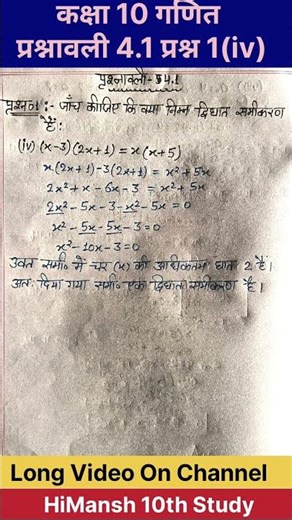 कक्षा 10 गणित
प्रश्नावली 4.1 प्रश्न 1(iv)
प्रश्नावली-4.1
प्रश्न1:- जाँच कीजिए कि क्या निम्न द्विघात समीकरण
हैं:
(iv) (x-3)(2x+1) = x(x+5)
x(2x+1)-3(2x+1) = x²+5x
2x²+x-6x-3 = x²+5x
2x²-5x-3-x²-5x=0
x²-5x-5x-3=0
x²-10x-3=0
उक्त समी० में चर (x) की अधिकतम घात 2 हैं।
अतः दिया गया समी० एक द्विघात समीकरण हैं।
Long Video On Channel
HiMansh 10th Study